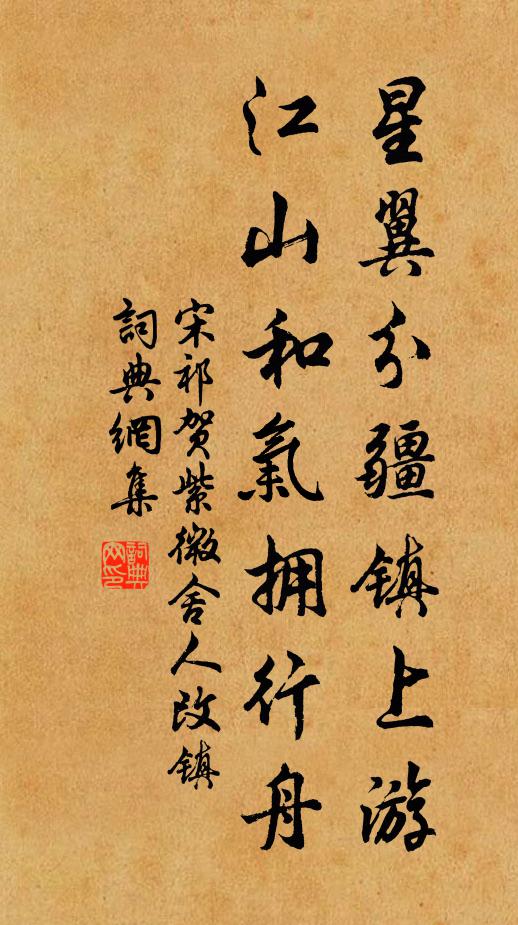 星翼分疆镇上游
江山和氣拥行舟
宋祁贺紫微舍人改镇
詞典網集
詞典
网印